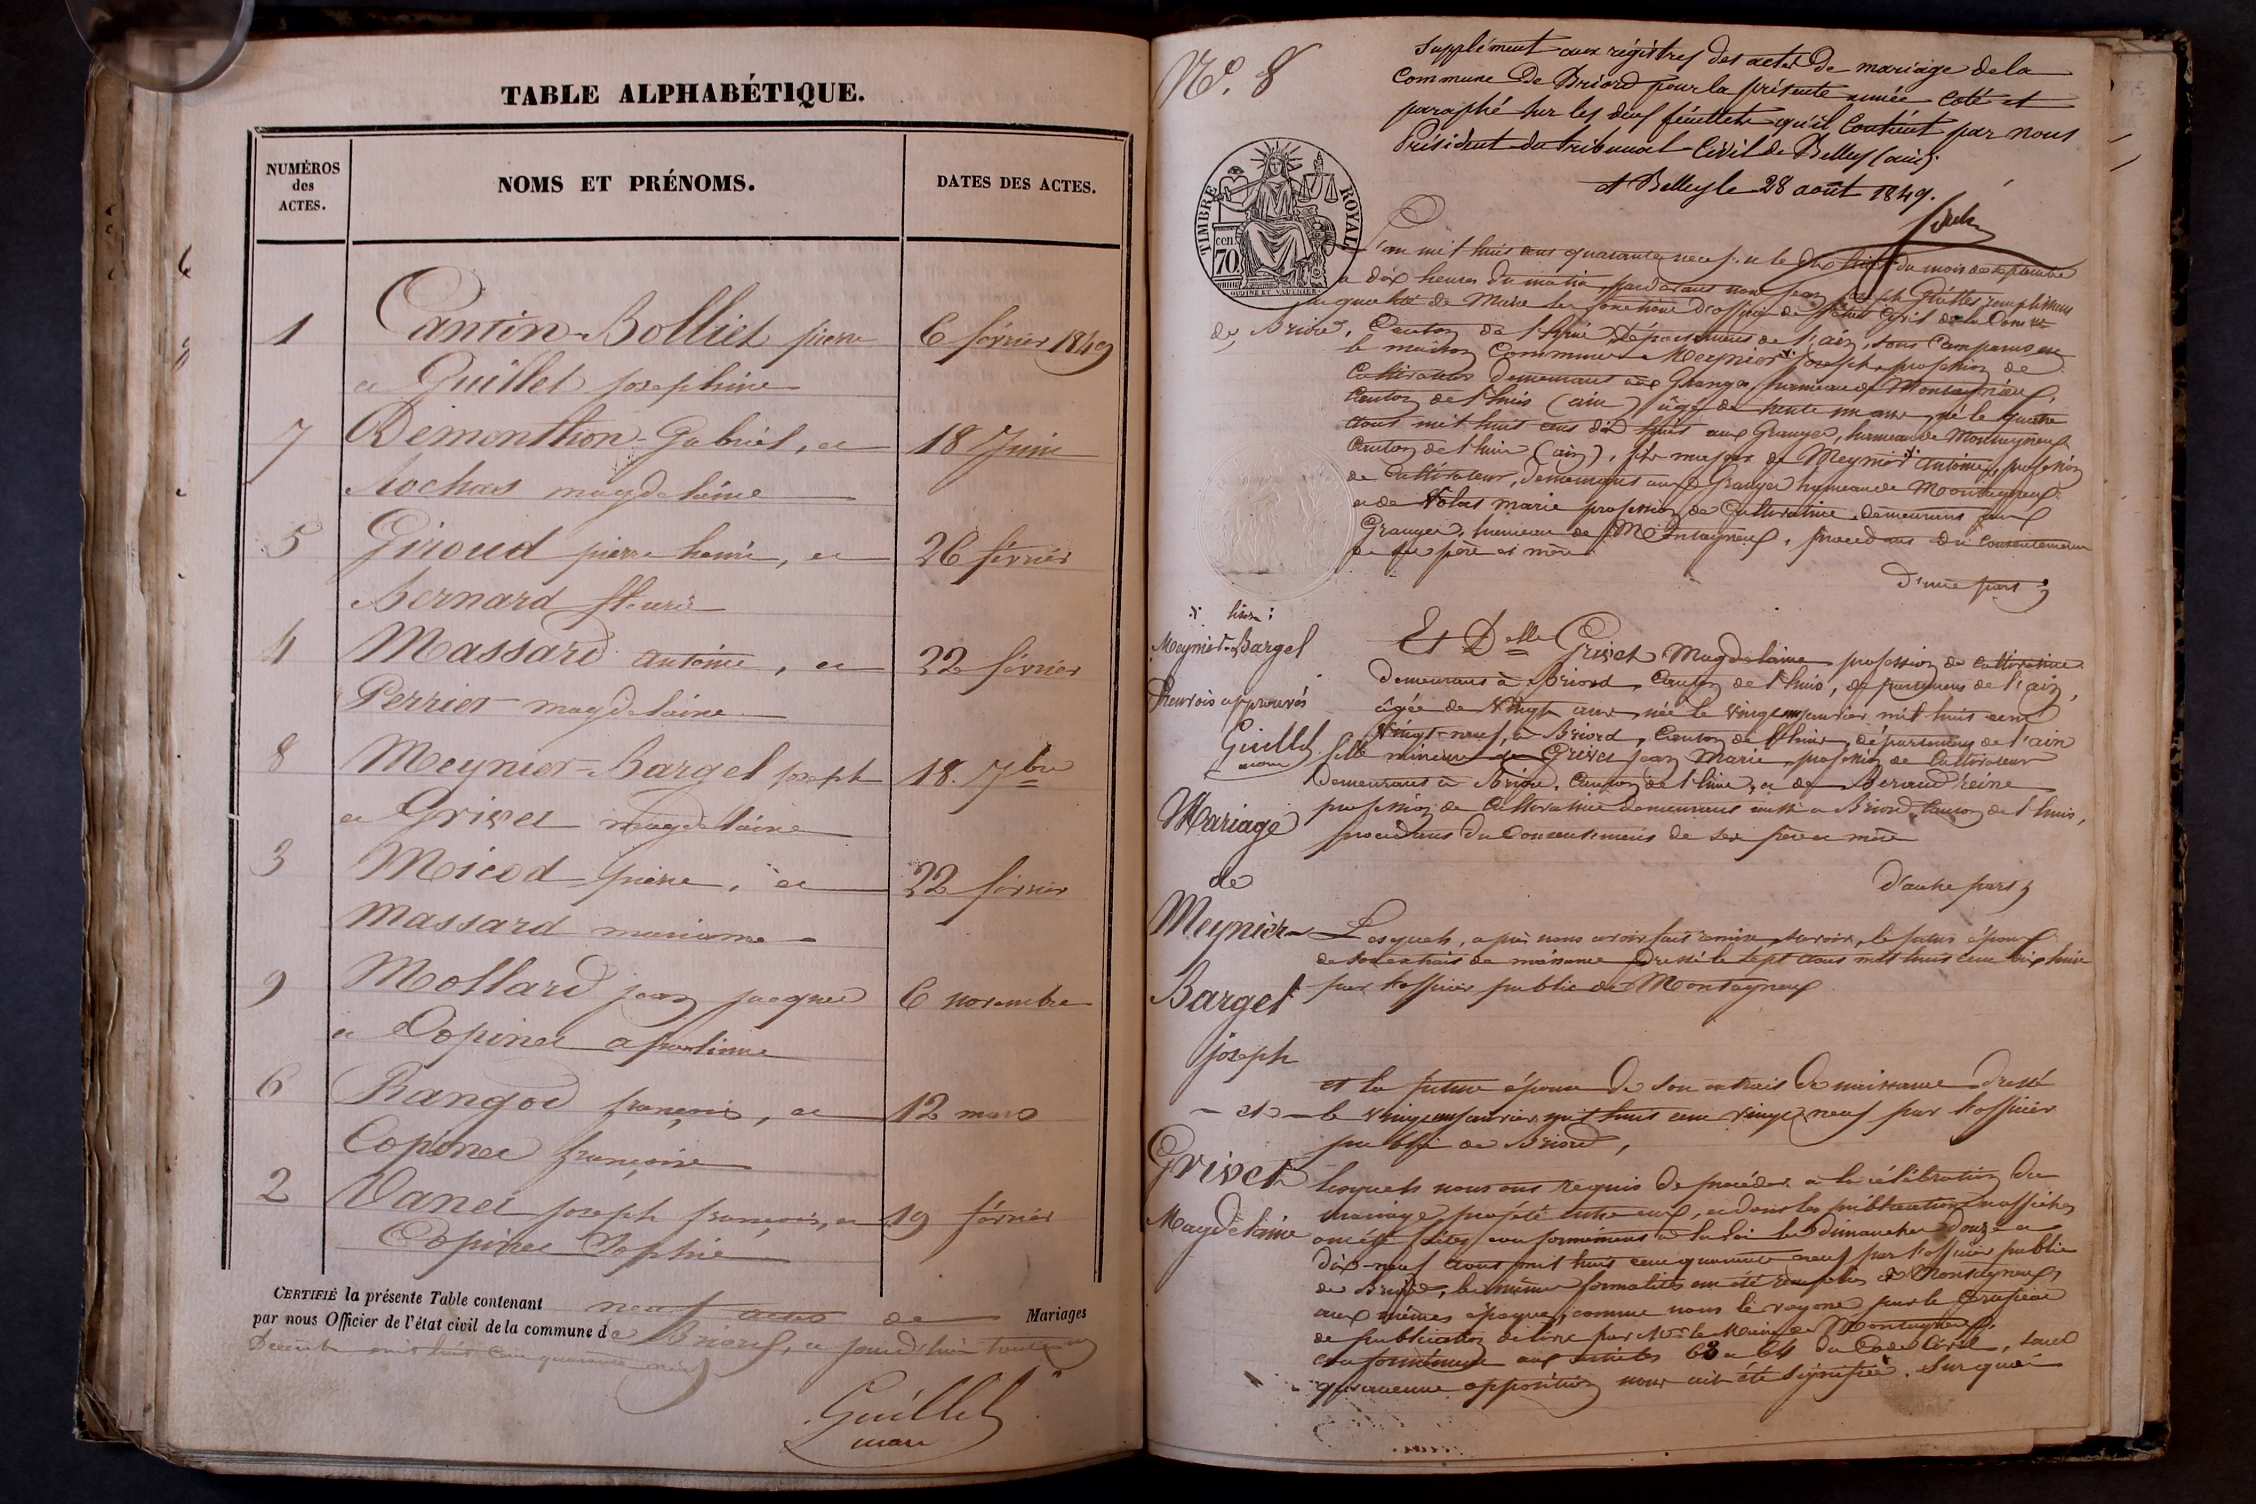 TABLE ALPHABÉTIQUE.
NUMÉROS
des
ACTES.
NOMS ET PRÉNOMS.
DATES DES ACTES.
1 Cantin-Bolliet pierre 6 février 1849
et Guillet josephine
7 Demonthion Gabriel, et 18 Juin
Rochas magdelaine
5 Giroud pierre henri, et 26 février
Bernard
4 Massard antoine, et 22 février
Perrier magdelaine
8 Meynier-Bargel joseph 18. 7bre
et Grivet magdelaine
3 Micod pierre, et 22 février
Massard marianne
9 Mollard jean jacques 6 novembre
et Copinet
6 Rangod françois, et 12 mars
Copinet françoise
2 Vanet joseph françois, et 19 février
Copinet Sophie
CERTIFIÉ la présente Table contenant neuf actes de Mariages
par nous Officier de l'état civil de la commune de Briord, ce jourd'hui trente un
Décembre mil huit cent quarante neuf
Guillet
maire
No. 8
Supplément aux régistres des actes de mariage de la
Commune de Briord pour la présente année coté et
paraphé sur les deux feuillets qu'il contient par nous
Président du tribunal Civil de Belley (ain).
A Belley le 28 août 1849.
TIMBRE ROYAL
70 cen.
L'an mil huit cent quarante neuf et le dix huit du mois de septembre
a dix heures du matin, pardevant nous jean joseph Guillet remplissant
en qualité de Maire les fonctions d'officier de l'état Civil de la Comne
de Briord, Canton de Lhuis, département de l'ain, sont Comparus en
la maison Commune Meynier joseph, profession de
Cultivateur demeurant aux Granges, hameau de Montagnieu,
Canton de Lhuis (ain) âgé de trente un ans, né le quatre
aout mil huit cent dix huit aux Granges, hameau de Montagneux
Canton de Lhuis (ain), fils majeur de Meynier antoine, profession
de Cultivateur, demeurant aux Granges hameau de Montagneux
et de marie profession de Cultivatrice demeurant aux
Granges, hameau de Montagneux, procédant du consentement
de ses père et mère
D'une part,
lisez:
Meynier-Bargel
Renvois approuvés
Guillet
maire
Et Delle Grivet Magdelaine profession de cultivatrice
demeurant à Briord, Canton de Lhuis, département de l'ain,
âgée de vingt ans, née le vingt un janvier mil huit cent
vingt-neuf, à Briord, Canton de Lhuis, département de l'ain
fille mineure de Grivet jean Marie, profession de Cultivateur
demeurant à Briord, Canton de Lhuis, et de Beraud reine
profession de Cultivatrice demeurant aussi a Briord, Canton de Lhuis,
procédant du Consentement de ses père et mère
d'autre part,
Mariage
de
Meynier-
Bargel
joseph
- et -
Grivet
Magdelaine
Lesquels, après nous avoir fait remise, savoir, le futur époux
de son extrait de naissance dressé le sept aout mil huit cent dix huit
par l'officier public de Montagneux
et la future épouse de son extrait de naissance dressé
le vingt un janvier mil huit cent vingt neuf par l'officier
public de Briord,
lesquels nous ont requis de procéder a la célébration du
mariage projeté entre eux, et dont les publications et affiches
ont été faites conformément à la loi les dimanches douze et
dix-neuf aout mil huit cent quarante neuf par l'officier public
de Briord, les mêmes formalités ont été remplies à Montagneux
aux mêmes époques, comme nous le voyons par le
de publication délivré par Mr le Maire de Montagneux
conformément aux articles 63 et 64 du Code Civil, sans
qu'aucune opposition nous ait été signifiée. Sur quoi